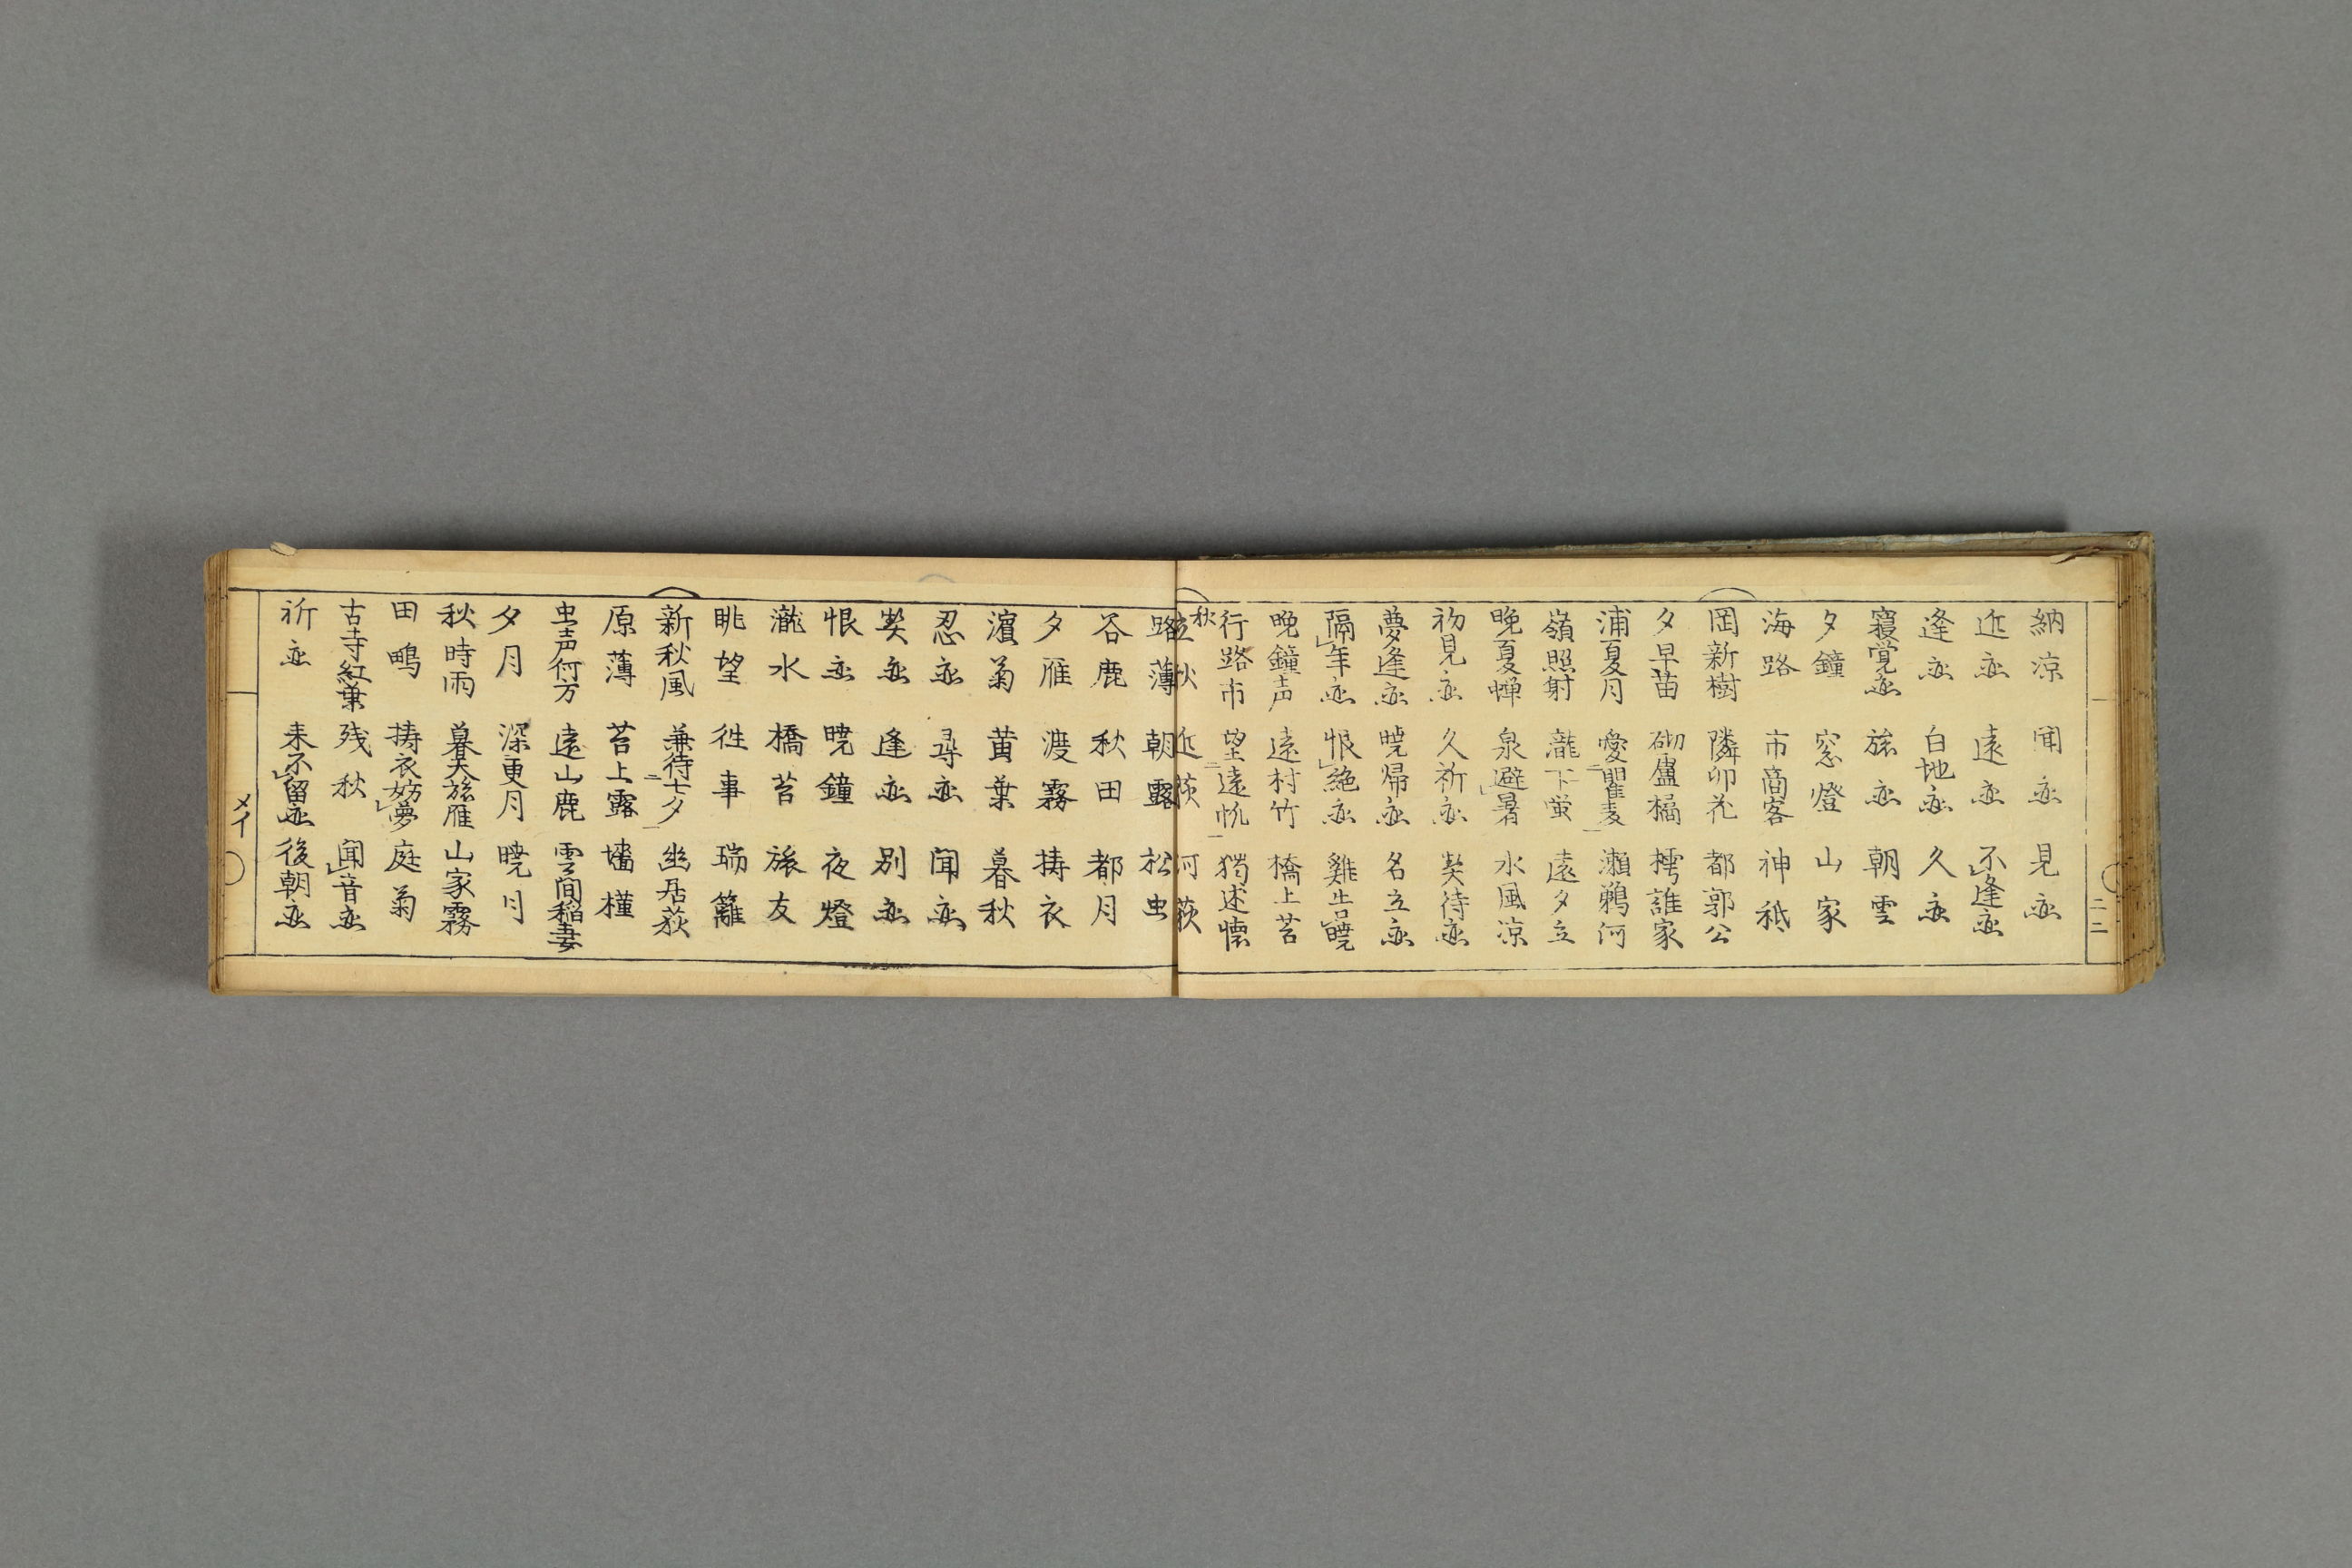 二二
納涼 聞恋 見恋
近恋 遠恋 不逢恋
逢恋 白地恋 久恋
寝覚恋 旅恋 朝雲
夕鐘 窓燈 山家
海路 市商客 神祇
岡新樹 隣卯花 都郭公
夕早苗 砌盧橘 樗誰家
浦夏月 愛瞿麦 瀬鵜河
嶺照射 瀧下蛍 遠夕立
晩夏蝉 泉避暑 水風涼
初見恋 久祈恋 契待恋
夢逢恋 暁帰恋 名立恋
隔年恋 恨絶恋 雞告暁
晩鐘声 遠村竹 橋上苔
行路市 望遠帆 独述懐
秋
立秋 近荻 河荻
路薄 朝露 松虫
谷鹿 秋田 都月
夕雁 渡霧 擣衣
濵菊 黄葉 暮秋
忍恋 尋恋 聞恋
契恋 逢恋 別恋
恨恋 暁鐘 夜燈
瀧水 橋苔 旅友
眺望 往事 瑞籬
新秋風 兼待七夕 幽居荻
原薄 苔上露 墻槿
虫声何方 遠山鹿 雲間稲妻
夕月 深更月 暁月
秋時雨 暮天旅雁 山家霧
田鴫 擣衣妨夢 庭菊
古寺紅葉 残秋 聞音恋
祈恋 来不留恋 後朝恋
メイ